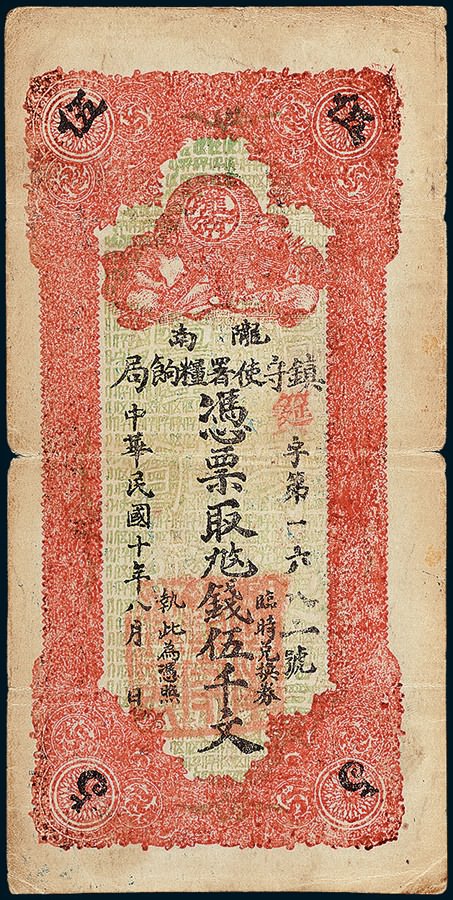 伍
伍
隴南
鎮守使署糧餉局
字第一六 號
憑票取 錢伍千文
臨時兌換券
執此為憑照
中華民國十年八月 日
5
5